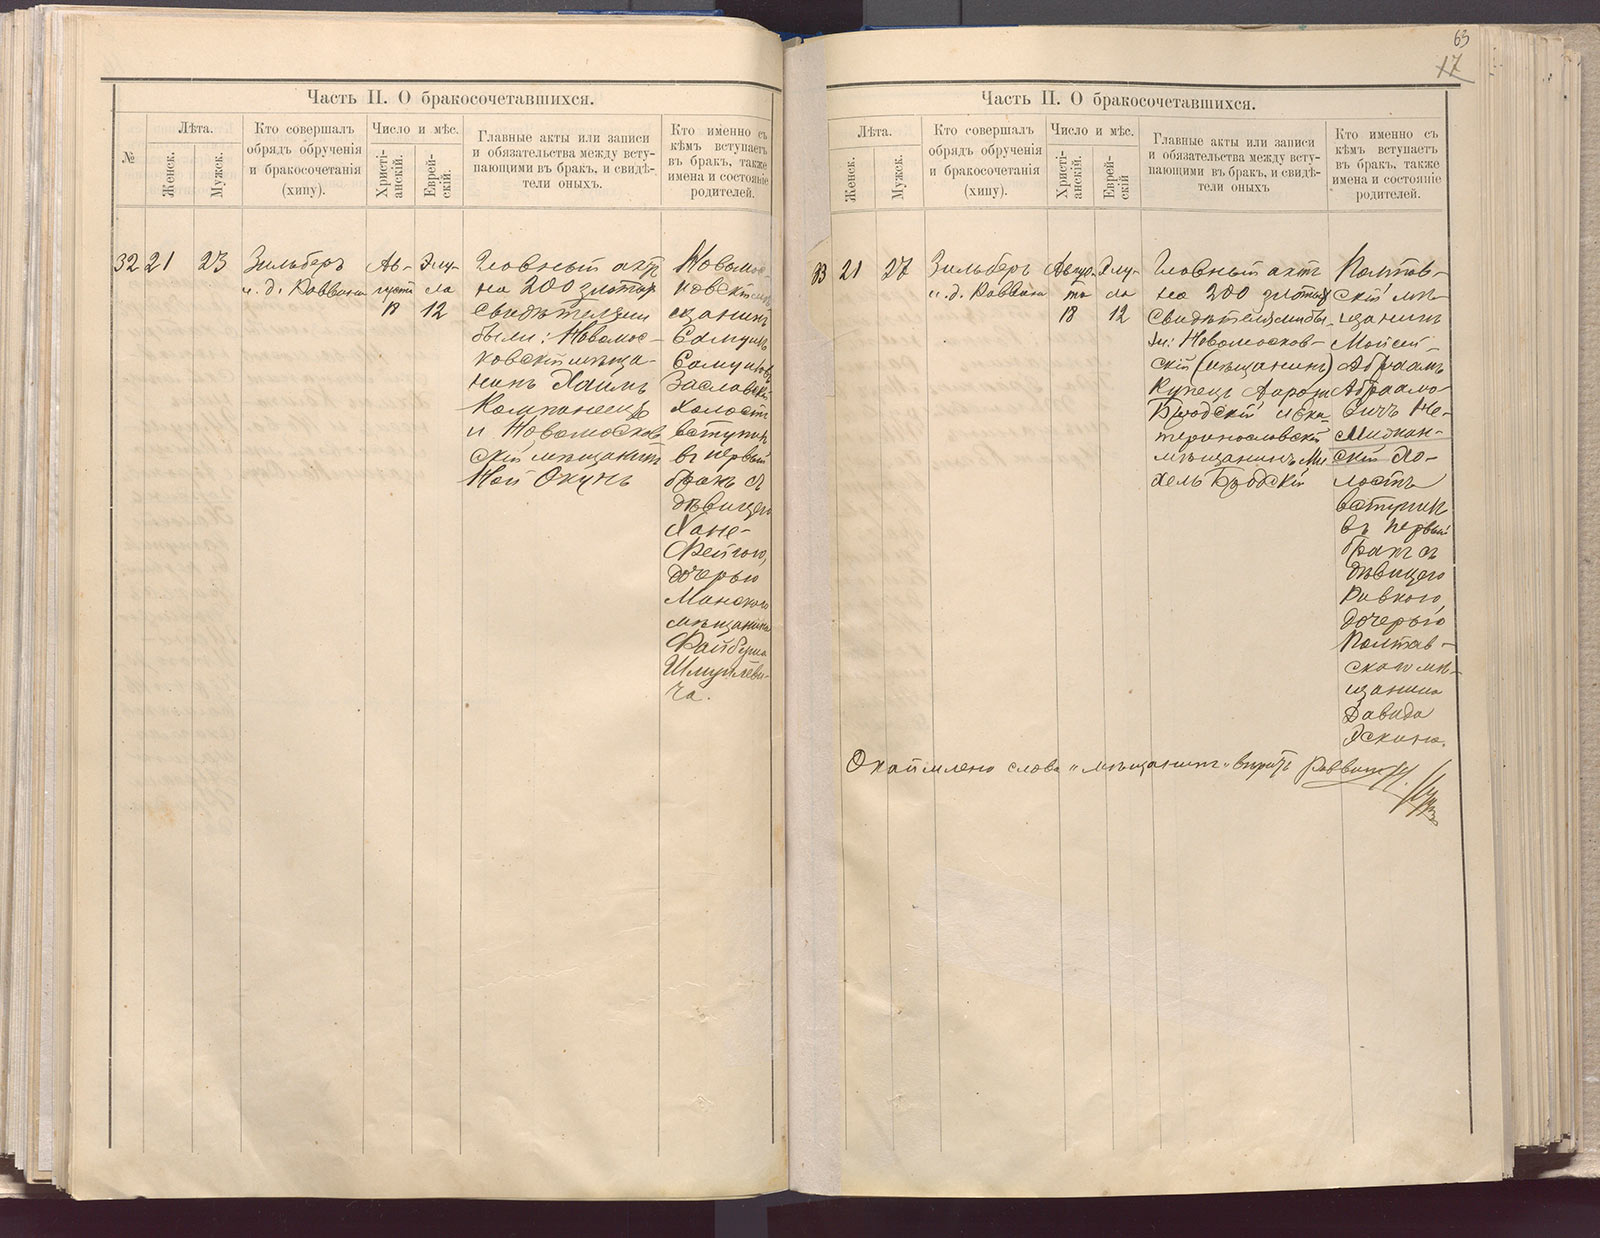 Часть II. О бракосочетавшихся.
№
Лѣта.
Женск.
Мужск.
Кто совершалъ
обрядъ обрученія
и бракосочетанія
(хипу).
Число и мѣс.
Христі-
анскій.
Еврей-
скій.
Главные акты или записи
и обязательства между всту-
пающими въ бракъ, и свидѣ-
тели оныхъ.
Кто именно съ
кѣмъ вступаетъ
въ бракъ, также
имена и состояніе
родителей.
32
21
23
Зильберъ
и. д. Раввина
Ав-
густа
18
Элу-
ла
12
Главный актъ
на 200 злотыхъ
свидѣтелями
были: Новомос-
ковскій мѣща-
нинъ Хаимъ
Компанеецъ
и Новомосков
скій мѣщанинъ
Ной Окунь
Новомос-
ковскій мѣ
щанинъ
Самуилъ
Самуиловъ
Заславскій
холостъ
вступилъ
въ первый
бракъ съ
дѣвицею
Хане-
Фейгою,
дочерью
Минского
мѣщанина
Файбуша
Шмуйлеви-
ча.
63
17
Часть II. О бракосочетавшихся.
Лѣта.
Женск.
Мужск.
Кто совершалъ
обрядъ обрученія
и бракосочетанія
(хипу).
Число и мѣс.
Христі-
анскій.
Еврей-
скій
Главные акты или записи
и обязательства между всту-
пающими въ бракъ, и свидѣ-
тели оныхъ
Кто именно съ
кѣмъ вступаетъ
въ бракъ, также
имена и состояніе
родителей.
33
21
27
Зильберъ
и. д. Раввина
Авгус-
та
18
Элу-
ла
12
Главный актъ
на 200 злотыхъ
Свидѣтелями бы-
ли: Новомосков-
скій (мѣщанинъ)
Купецъ Ааронъ
Бродскій и Ека-
теринославскій
мѣщанинъ Ми
хель Бродскій
Полтав-
скій мѣ-
щанинъ
Мойсей-
Абрамъ
Абрамо-
вичъ Не-
смижан-
скій Хо-
лостъ
вступилъ
въ первый
бракъ съ
дѣвицею
Ривкою,
дочерью
Полтав-
скаго мѣ-
щанина
Давида
Эскина.
Окаймлено слова „мѣщанинъ“ вѣрить Раввинъ